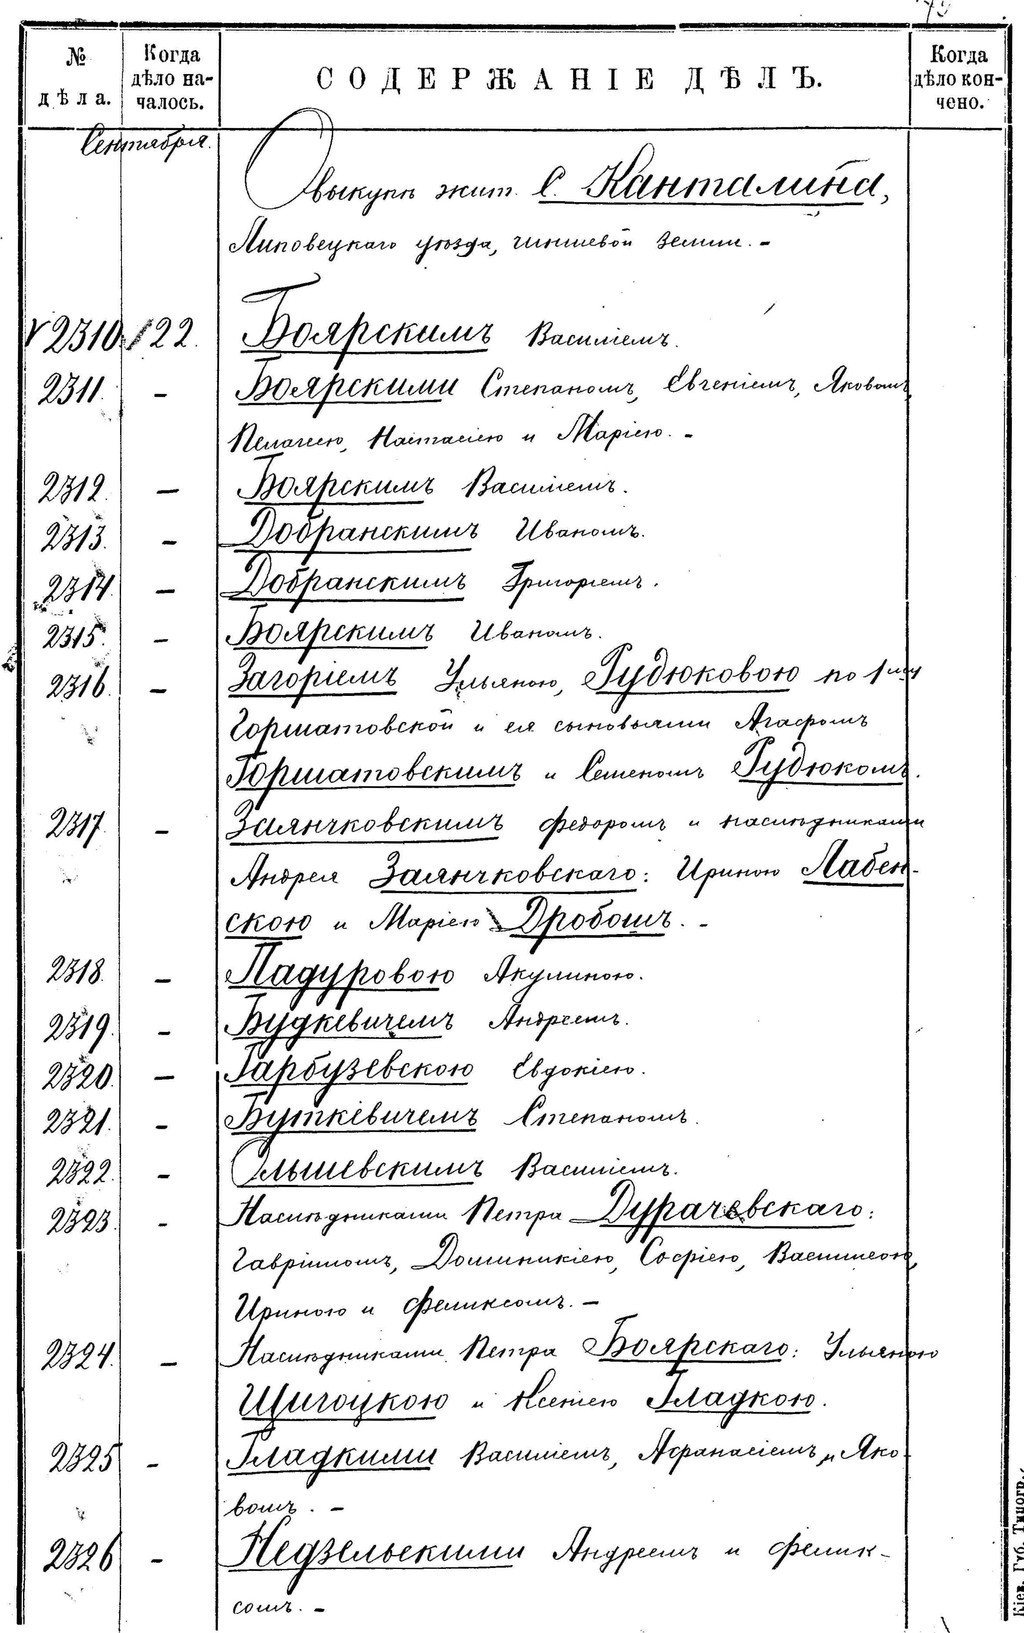 № дѣла. Когда дѣло началось. СОДЕРЖАНІЕ ДѢЛЪ. Когда дѣло кончено.
Сентября.
О выкупѣ жит. С. Канталина,
Липовецкаго уѣзда, чиншевой земли. –
2310 22. Боярскимъ Василіемъ.
2311. – Боярскими Степаномъ, Евгеніемъ, Яковомъ,
Пелагеею, Настасіею и Маріею. –
2312. – Боярскимъ Василіемъ.
2313. – Добранскимъ Иваномъ.
2314. – Добранскимъ Григоріемъ.
2315. – Боярскимъ Иваномъ.
2316. – Загоріемъ Ульяною, Гудюковою по 1 мужу
Горшатовской и ея сыновьями Агафомъ
Горшатовскимъ и Семеномъ Гудюкомъ.
2317. – Заянчковскимъ Федоромъ и наслѣдниками
Андрея Заянчковскаго: Ириною Лабен-
скою и Маріею Дробошъ. –
2318. – Падуровою Акулиною.
2319. – Будкевичемъ Андреемъ.
2320. – Гарбузевскою Евдокіею.
2321. – Буткевичемъ Степаномъ.
2322. – Ольшевскимъ Василіемъ.
2323. – Наслѣдниками Петра Дурачевскаго:
Гавріиломъ, Доминикіею, Софіею, Василисою,
Ириною и Феликсомъ. –
2324. – Наслѣдниками Петра Боярскаго: Ульяною
Щигоцкою и Ксеніею Гладкою.
2325 – Гладкими Василіемъ, Афанасіемъ и Яко-
вомъ. –
2326 – Недзельскими Андреемъ и Фелик-
сомъ. –
Кіев. Губ. Типогр.